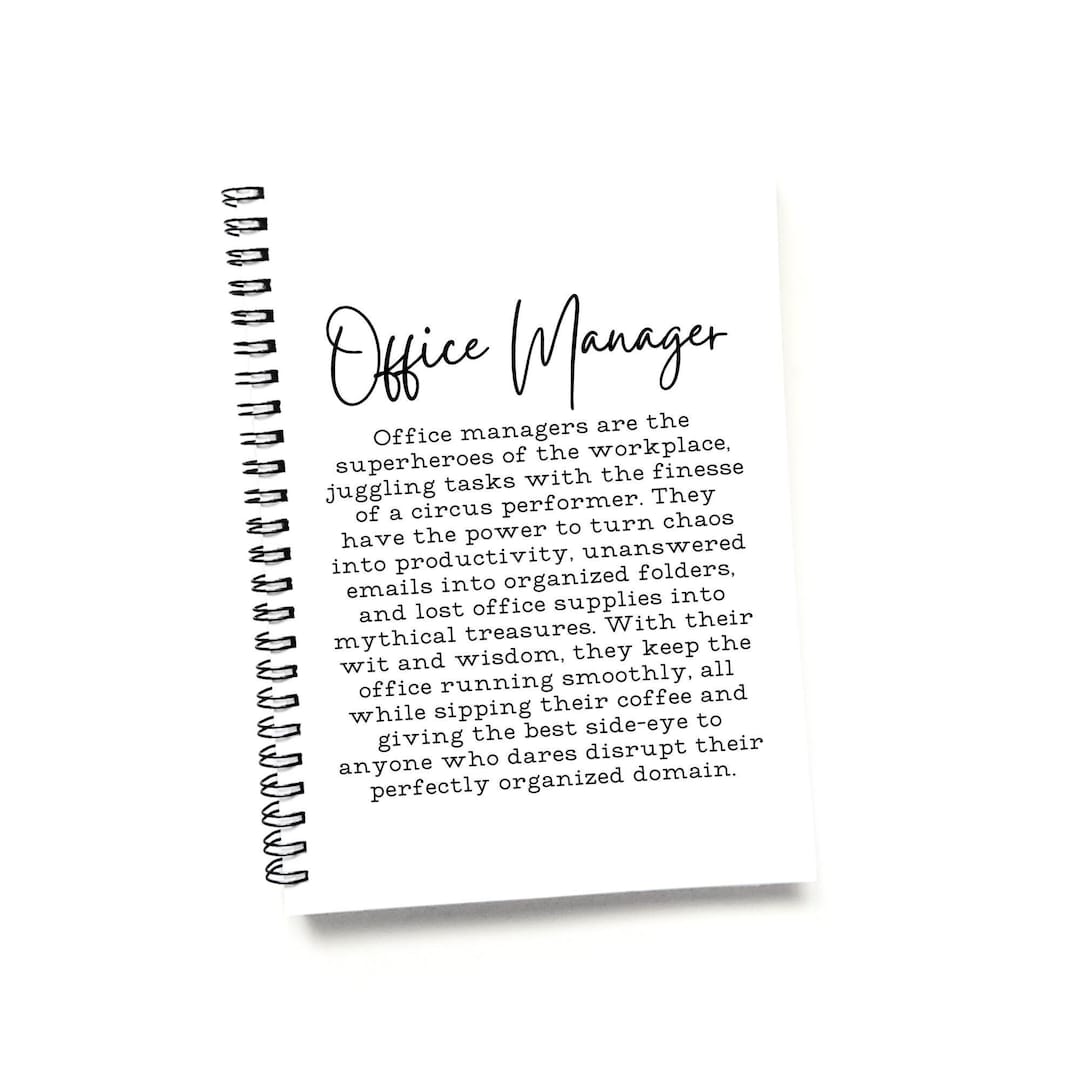 Office Manager
Office managers are the
superheroes of the workplace,
juggling tasks with the finesse
of a circus performer. They
have the power to turn chaos
into productivity, unanswered
emails into organized folders,
and lost office supplies into
mythical treasures. With their
wit and wisdom, they keep the
office running smoothly, all
while sipping their coffee and
giving the best side-eye to
anyone who dares disrupt their
perfectly organized domain.